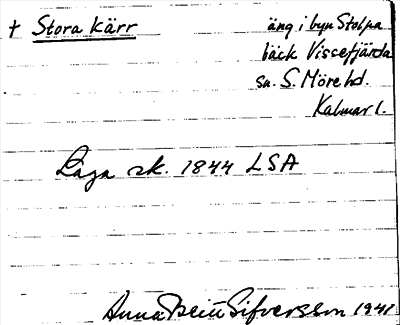 † Stora Kärr
äng i byn Stolpa
bäck Vissefjärda
sn. S. Möre hd.
Kalmar l.
Laga sk. 1844 LSA
Anna Britt Sifversson 1941